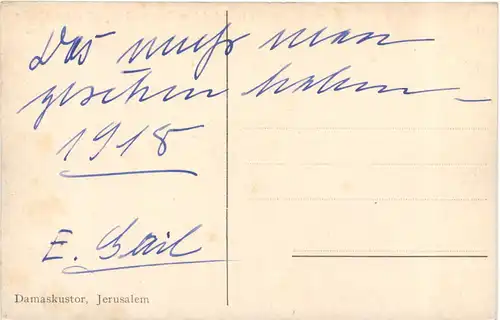 Das muß man
gesehen haben –
1918
E. Beil
Damaskustor, Jerusalem